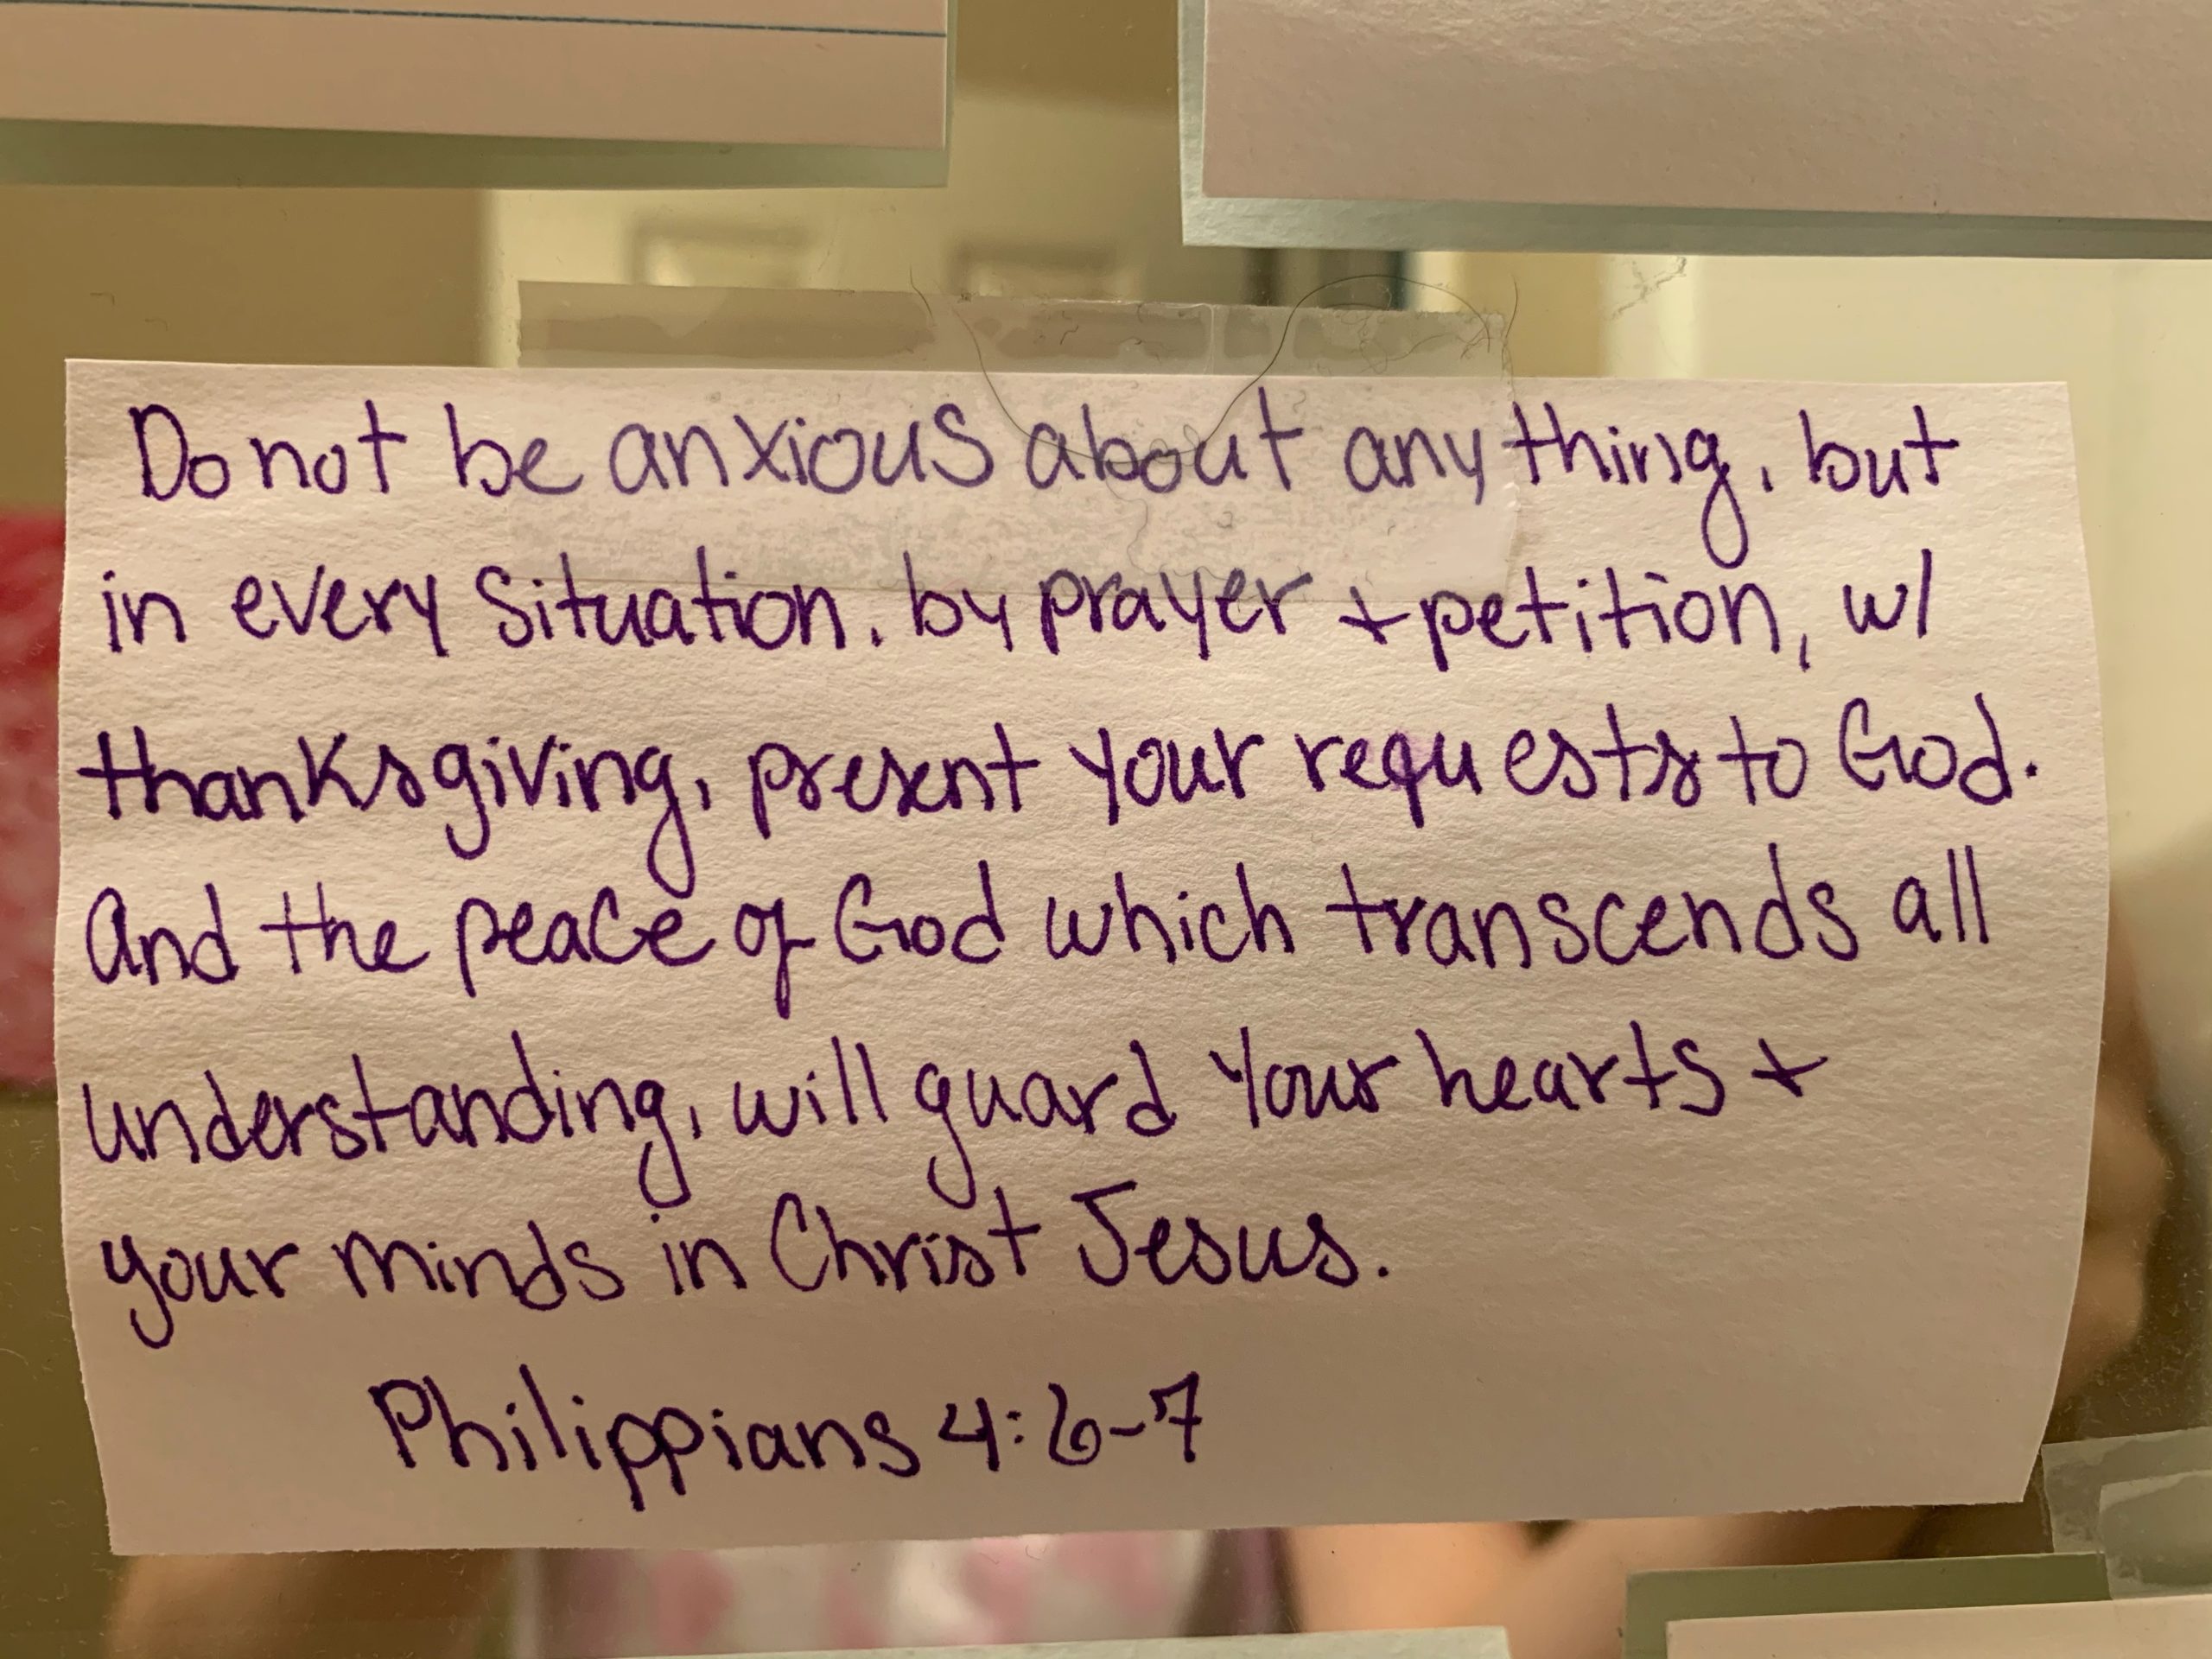 Do not be anxious about anything, but
in every situation, by prayer + petition, w/
thanksgiving, present your requests to God.
And the peace of God which transcends all
understanding, will guard your hearts +
your minds in Christ Jesus.
Philippians 4:6-7